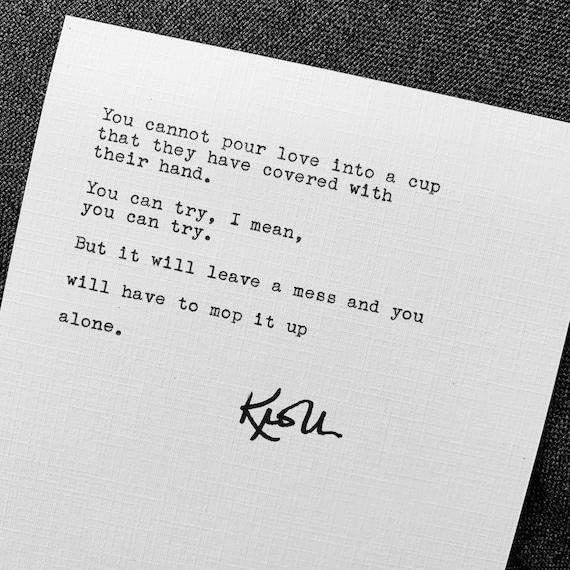 You cannot pour love into a cup
that they have covered with
their hand.
You can try, I mean,
you can try.
But it will leave a mess and you
will have to mop it up
alone.